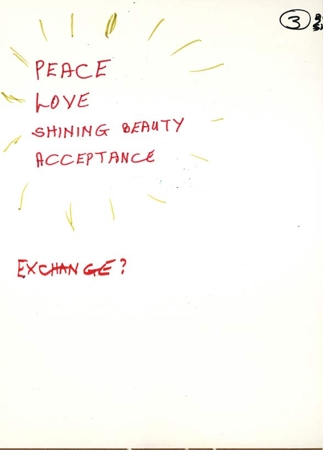 3
PEACE
LOVE
SHINING BEAUTY
ACCEPTANCE
EXCHANGE?